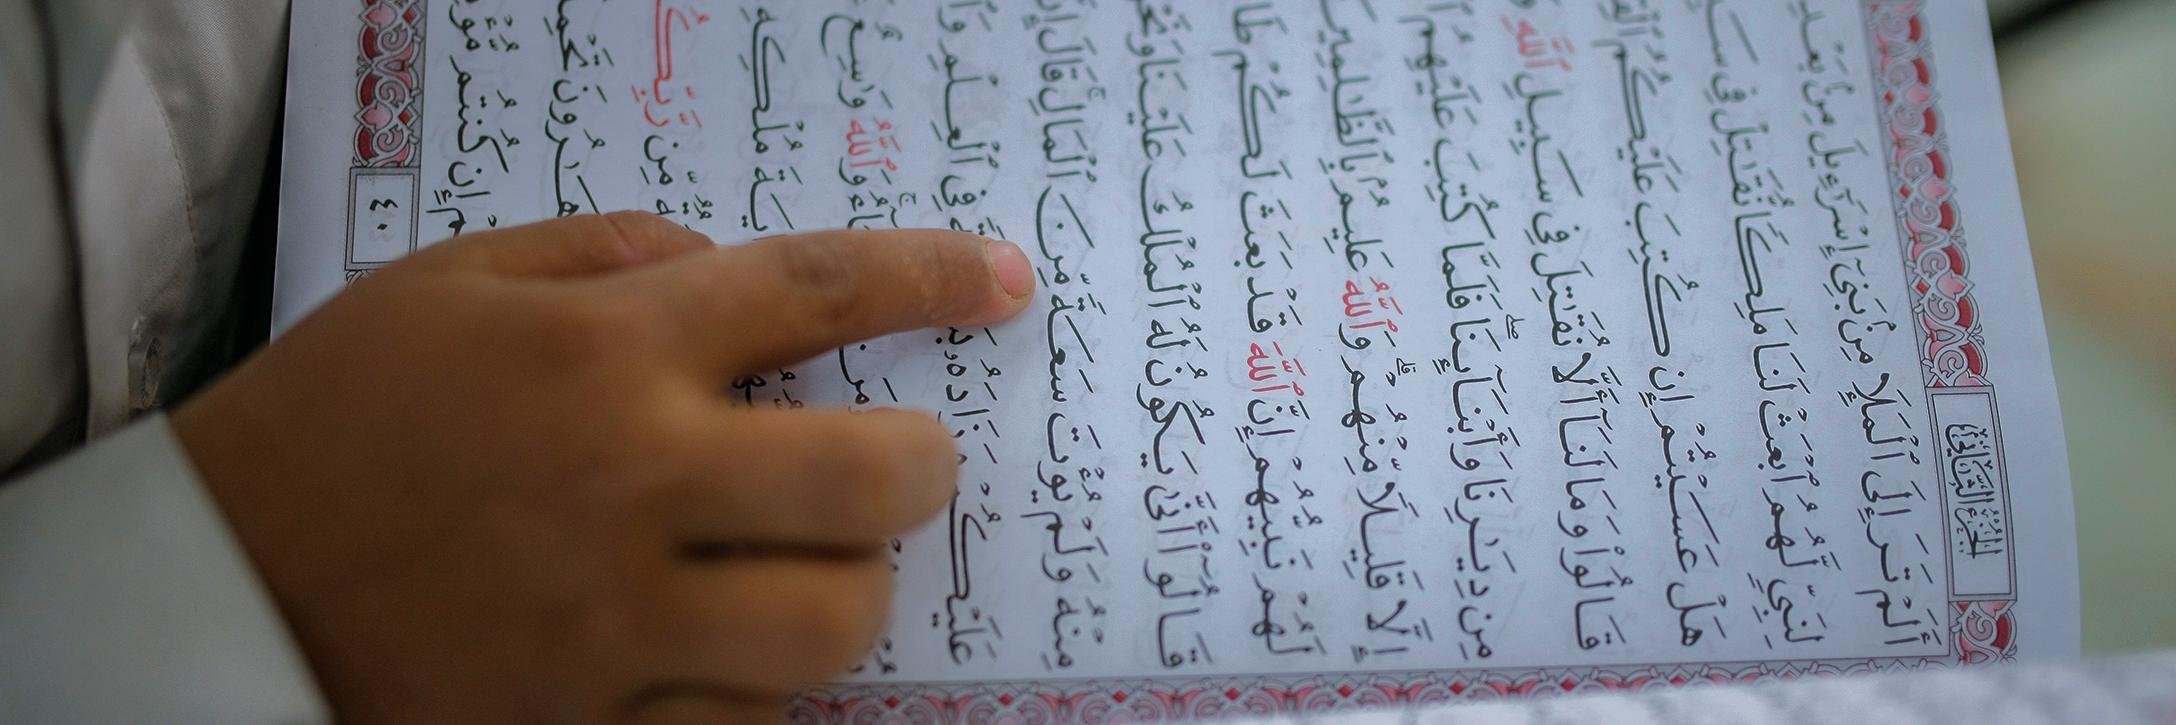 ٱلْجُزْءُ ٱلثَّانِى
أَلَمْ تَرَ إِلَى ٱلْمَلَإِ مِنۢ بَنِىٓ إِسْرَٰٓءِيلَ مِنۢ بَعْدِ
لِنَبِىٍّ لَّهُمُ ٱبْعَثْ لَنَا مَلِكًا نُّقَٰتِلْ فِى
هَلْ عَسَيْتُمْ إِن كُتِبَ عَلَيْكُمُ
قَالُوا۟ وَمَا لَنَآ أَلَّا نُقَٰتِلَ فِى سَبِيلِ ٱللَّهِ
مِن دِيَٰرِنَا وَأَبْنَآئِنَا ۖ فَلَمَّا كُتِبَ عَلَيْهِمُ
إِلَّا قَلِيلًا مِّنْهُمْ ۗ وَٱللَّهُ عَلِيمٌۢ بِٱلظَّٰلِمِينَ
لَهُمْ نَبِيُّهُمْ إِنَّ ٱللَّهَ قَدْ بَعَثَ لَكُمْ
قَالُوٓا۟ أَنَّىٰ يَكُونُ لَهُ ٱلْمُلْكُ عَلَيْنَا وَنَحْنُ
مِنْهُ وَلَمْ يُؤْتَ سَعَةً مِّنَ ٱلْمَالِ ۚ قَالَ إِنَّ
عَلَيْكُمْ وَزَادَهُۥ فِى ٱلْعِلْمِ
وَٱللَّهُ وَٰسِعٌ
مُلْكِهِۦٓ
مِّن رَّبِّكُمْ
هَٰرُونَ
إِن كُنتُم
٤٠